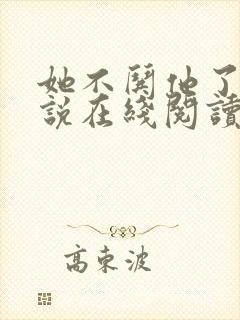 她不闗他了
說在綫閱讀
高東波